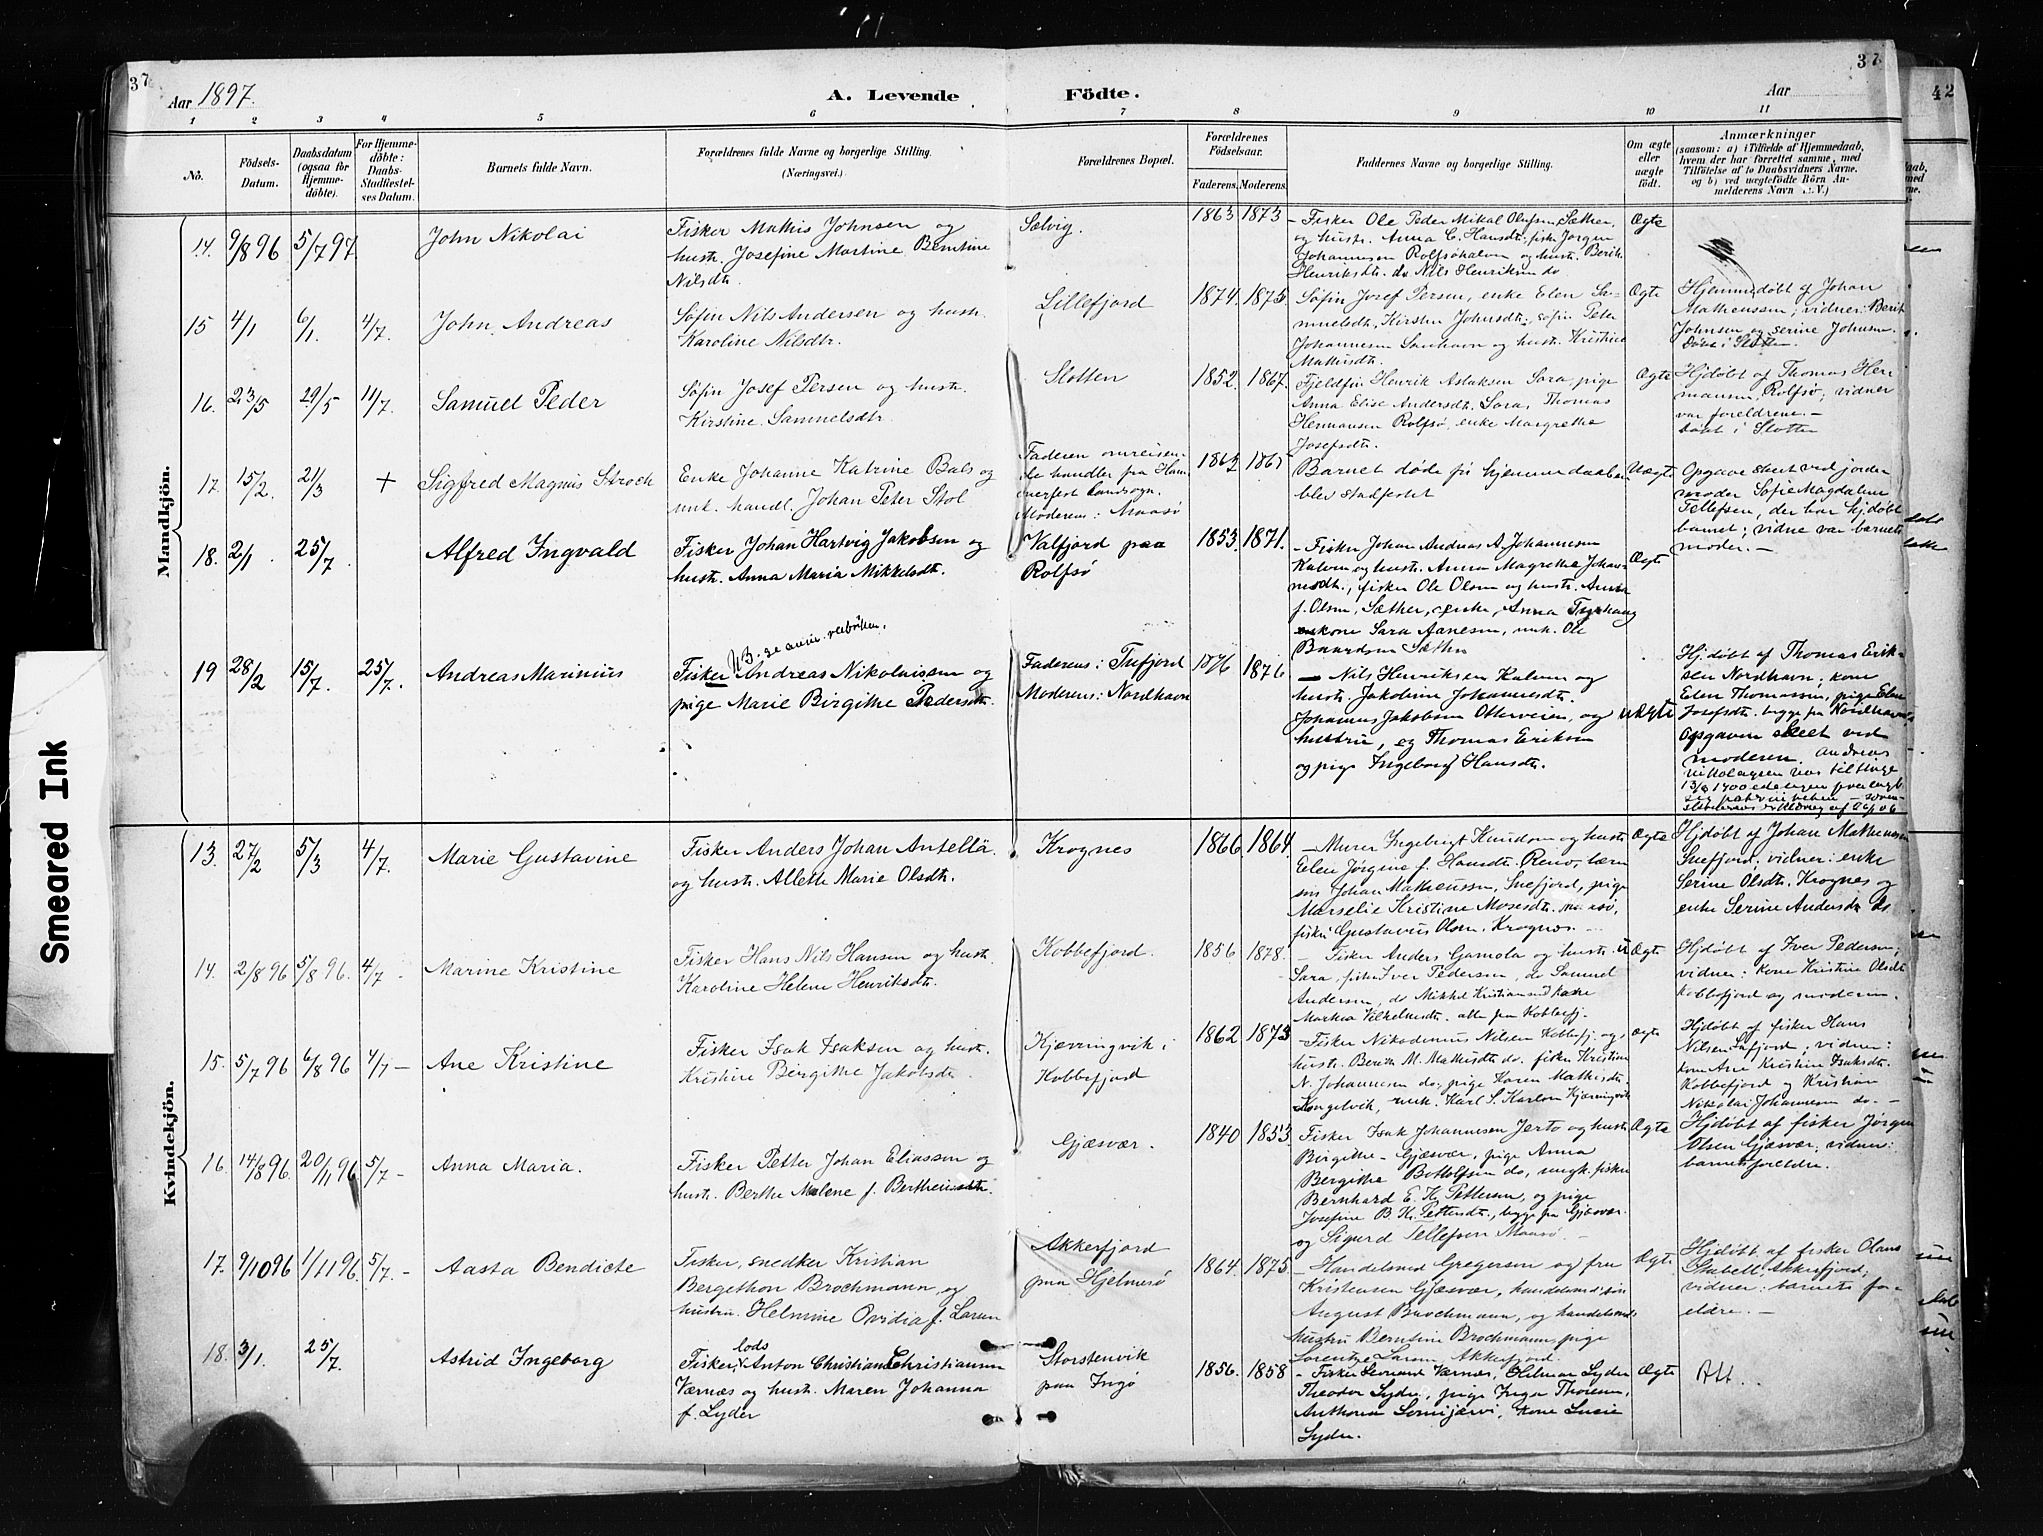 37
Aar 1897.
A. Levende Födte.
Aar
37
42
1 2 3 4 5 6 7 8 9 10 11
No.
Födsels-Datum.
Daabsdatum (ogsaa for Hjemmedöbte).
For Hjemmedöbte: Daabs-Stadfæstelses Datum.
Barnets fulde Navn.
Forældrenes fulde Navne og borgerlige Stilling. (Næringsvei.)
Forældrenes Bopæl.
Forældrenes Födselsaar.
Faderens. Moderens.
Faddernes Navne og borgerlige Stilling.
Om ægte eller uægte födt.
Anmærkninger
(saasom: a) i Tilfælde af Hjemmedaab, hvem der har forrettet samme, med Tilföielse af to Daabsvidners Navne. og b) ved uægtefödte Börn Anmelderens Navn
Smeared Ink
Mandkjön.
14. 9/8 96 5/7 97 John Nikolai
Fisker Mathis Johnsen og
hustr. Josefine Martine Berntine
Nilsdtr.
Sælvig.
1863 1873
Fisker Ole Peder Mikal Olufsen Sæther,
og hustr. Anna C. Hansdt. fisk. Jørgen
Johannesen Rolfsøhavn og hustr. Berit
Henriksdt. do Nils Henriksen do
Ægte
15 4/1 6/1. 4/7. John Andreas
Søfin Nils Andersen og hustr.
Karoline Nilsdtr.
Lillefjord
1874. 1875
Søfin Josef Persen, enke Elen Sa-
muelsdt, Kirsten Johnsdt, søfin Peter
Johannesen Sanhavn og hustr. Kristine
Mathisdt.
Ægte
Hjemmedøbt af Johan
Matheussen, vidner: Berit
Johnsen og Serine Johnsen.
Døbt i Slotten
16. 23/5 29/5 11/7. Samuel Peder
Søfin Josef Persen og hustr.
Kirstine Samuelsdtr.
Slotten
1852. 1867.
Fjeldfin Henrik Aslaksen Sara, pige
Anna Elise Andersdt. Sara, Thomas
Hermansen Rolfsø, enke Margrethe
Josefsdt.
Ægte
Hjdøbt af Thomas Her-
mansen, Rolfsø, vidner
var foreldrene.-
Døbt i Slotten
17. 15/2. 21/3 + Sigfred Magnus Stroch
Enke Johanne Katrine Bals og
unk. handl. Johan Peter Stol
Faderen omreisen-
de handler fra Ham-
merfest landsogn.
Moderens: Maasø
Barnet døde før hjemmedaaben
blev stadfestet
Uægte
Opgave skeet ved jorde-
moder Sofie Magdalene
Tellefsen, der har hjdøbt
barnet; vidne var barnets
moder.-
18. 2/1 25/7. Alfred Ingvald
Fisker Johan Hartvig Jakobsen og
hustr. Anna Maria Mikkelsdt.
Valfjord paa
Rolfsø
1853. 1871.
Fisker Johan Andreas A. Johannesen
Kalven og hustr. Anna Magrethe Johan-
nesdt., fisker Ole Olsen og hustr. Anna
f. Olsen, Sæther, enke, Anna
kone Sara Aanesen, unk. Ole
Baardsen Sæther
Ægte
19 28/2 15/7. 25/7. Andreas Marinius
NB. se anm. rubrikken.
Fisker Andreas Nikolaisen og
pige Marie Birgithe Pedersdt.
Faderens: Tufjord
Moderens: Nordhavn
1876 1876
Nils Henriksen Kalven og
hustr. Jakobine Johannesdt.
Johannes Jakobsen Otterveien, og
hustru, og Thomas Eriksen
og pige Ingeborg Hansdt.
uÆgte
Hjdøbt af Thomas Erik-
sen Nordhavn; kone
Elen Thomassen, pige Elen
Josefsdt. begge fra Nordhavn.
Opgaven skeet ved
moderen. Andreas
Nikolaysen har til thinge
Kvindekjön.
13. 27/2 5/3 4/7. Marie Gustavine
Fisker Anders Johan Antellä.
og hustr. Allette Marie Olsdt.
Krognes
1866. 1864.
Murer Ingebrigt Knudsen og hustr.
Elen Jørgine f. Hansdt. Renø, lærer
Johan Matheussen, Snefjord, pige
Marselie Kristine Mosesdt.
fisker Gustavius Olsen, Krognes.
Ægte
Hjdøbt af Johan Matheussen
Snefjord, vidner: enke
Serine Olsdt. Krognes og
enke Serine Andersdt do
14. 2/8 96 5/8 96. 4/7 - Marine Kristine
Fisker Hans Nils Hansen og hustr.
Karoline Helene Henriksdt.
Kobbefjord.
1856 1878.
Fisker Anders Gamola og hustr.
Sara, fisk. Iver Pedersen, do Samuel
Andersen, do Mikkel Kristiansen,
Markea Vilhelmsdt. alle fra Kobbefj.
uÆgte
Hjdøbt af Iver Pedersen;
vidner: kone Kristine Olsdt
Kobbefjord og moderen.
15. 5/7 96 6/8 96 4/7 - Ane Kristine
Fisker Isak Isaksen og hustr.
Kristine Birgithe Jakobsdt.
Kjærringvik i
Kobbefjord
1862 1873
Fisker Nikodemus Nilsen Kobbefj. og
hustr. Berith M. Mathisdt do. fisker Kristian
N. Johannesen do, pige Karen Mathisdt.
Kongelvik, unk. Karl S. Karlsen Kjærringvik
Ægte
Hjdøbt af fisker Hans
Nilsen Lafjord, vidner:
kone Ane Kristine Isaksdt.
Kobbefjord og Kristian
Nikolai Johannesen do.-
16. 14/8 96. 20/11 96 5/7 - Anna Maria.
Fisker Petter Johan Eliassen og
hustr. Berthe Malene f. Bertheusdt.
Gjæsvær.
1840 1853
Fisker Isak Johannesen Jerto og hustr.
Birgithe - Gjæsvær, pige Anna
Bergithe Bottolfsen do, ungk. fisker
Bernhard E. K. Pettersen, og pige
Josefine B. K. Pettersdt., begge fra Gjæsvær.
og Sigurd Tellefsen Maasø.
Ægte
Hjdøbt af fisker Jørgen
Olsen Gjæsvær; vidner:
barnets foreldre.
17. 9/10 96 1/11 96. 5/7. - Aasta Bendicte
Fisker, snedker Kristian
Bergethon Brochmann, og
hustru Helmine Ovidia f. Larsen
Akkerfjord
paa Hjelmsø
1864. 1875
Handelsmd Gregersen og fru
Kristensen Gjæsvær, handelsmd
August Brochmann, og handelsmds
hustru Berntine Brochmann, pige
Lorentze Larsen Akkerfjord.
Ægte
Hjdøbt af fisker Olaus
Stabell, Akkerfjord;
vidner: barnets for-
eldre.-
18. 3/1. 25/7. Astrid Ingeborg
lods
Fisker, Anton Christian Christiansen
Værnæs og hustr. Maren Johanna
f. Lyder
Storstenvik
paa Ingø
1856. 1858
Fisker Leonard Værnæs, Hilmar Lyder
Theodor Lyder, pige Inga Thoresen,
Anthona Somijærvi, kone Lucie
Lyder.
Ægte
Att.